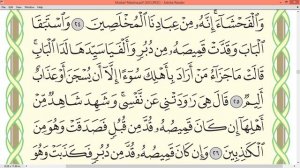 Mushaf Madina.pdf (SECURED) - Adobe Reader
وَٱلْفَحْشَآءَ ۚ إِنَّهُۥ مِنْ عِبَادِنَا ٱلْمُخْلَصِينَ ٢٤ وَٱسْتَبَقَا
ٱلْبَابَ وَقَدَّتْ قَمِيصَهُۥ مِن دُبُرٍ وَأَلْفَيَا سَيِّدَهَا لَدَا ٱلْبَابِ ۚ
قَالَتْ مَا جَزَآءُ مَنْ أَرَادَ بِأَهْلِكَ سُوٓءًا إِلَّآ أَن يُسْجَنَ أَوْ عَذَابٌ
أَلِيمٌ ٢٥ قَالَ هِىَ رَٰوَدَتْنِى عَن نَّفْسِى ۚ وَشَهِدَ شَاهِدٌ مِّنْ
أَهْلِهَآ إِن كَانَ قَمِيصُهُۥ قُدَّ مِن قُبُلٍ فَصَدَقَتْ وَهُوَ مِنَ
ٱلْكَٰذِبِينَ ٢٦ وَإِن كَانَ قَمِيصُهُۥ قُدَّ مِن دُبُرٍ فَكَذَبَتْ وَهُوَ